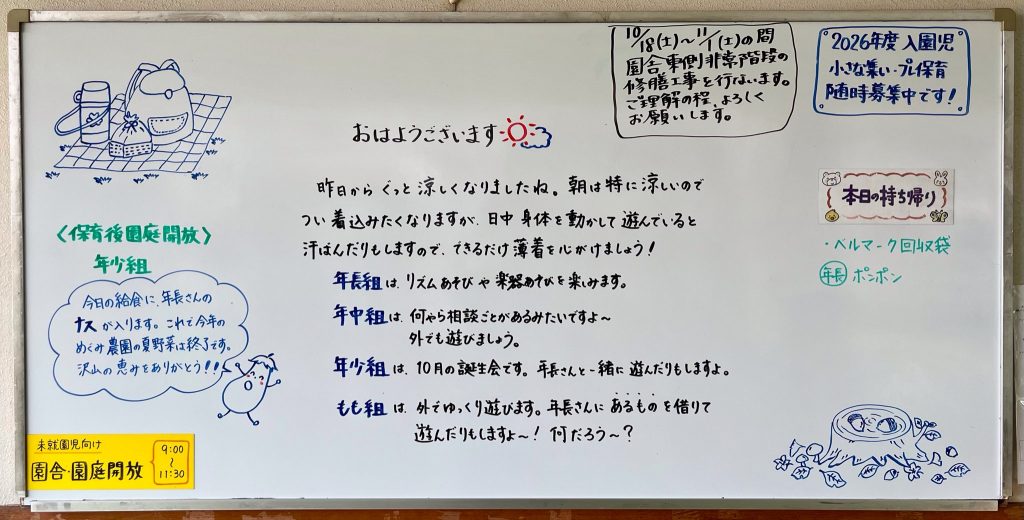 10/18(土)〜11/1(土)の間
園舎東側非常階段の
修膳工事を行ないます。
ご理解の程、よろしく
お願いします。
2026年度 入園児
小さな集い・プレ保育
随時募集中です!
おはようございます
昨日から ぐっと 涼しくなりましたね。朝は特に涼しいので
つい着込みたくなりますが、日中 身体を動かして遊んでいると
汗ばんだりもしますので、できるだけ薄着を心がけましょう!
年長組は、リズムあそびや楽器あそびを楽しみます。
年中組は、何やら相談ごとがあるみたいですよ〜
外でも遊びましょう。
年少組は、10月の誕生会です。年長さんと一緒に遊んだりもしますよ。
もも組は、外でゆっくり遊びます。年長さんにあるものを借りて
遊んだりもしますよ〜! 何だろう〜?
〈保育後園庭開放〉
年少組
今日の給食に、年長さんの
ナスが入ります。これで今年の
めぐみ農園の夏野菜は終了です。
沢山の恵みをありがとう!!
未就園児向け
園舎・園庭開放
9:00
〜
11:30
本日の持ち帰り
・ベルマーク回収袋
年長 ポンポン